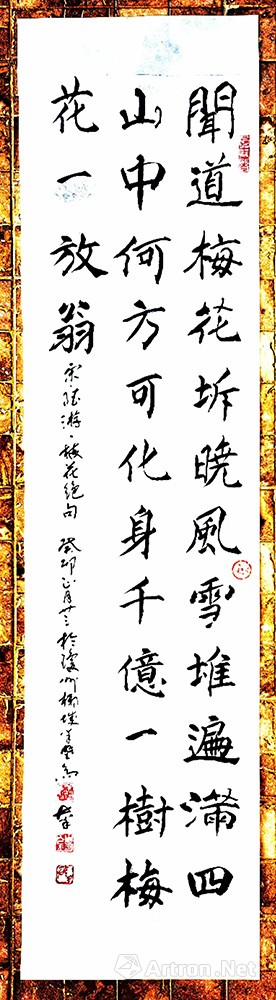 聞道梅花坼曉風雪堆遍滿四
山中何方可化身千億一樹梅
花一放翁
宋陸游·梅花絕句 癸卯正月廿三於
Artron.Net